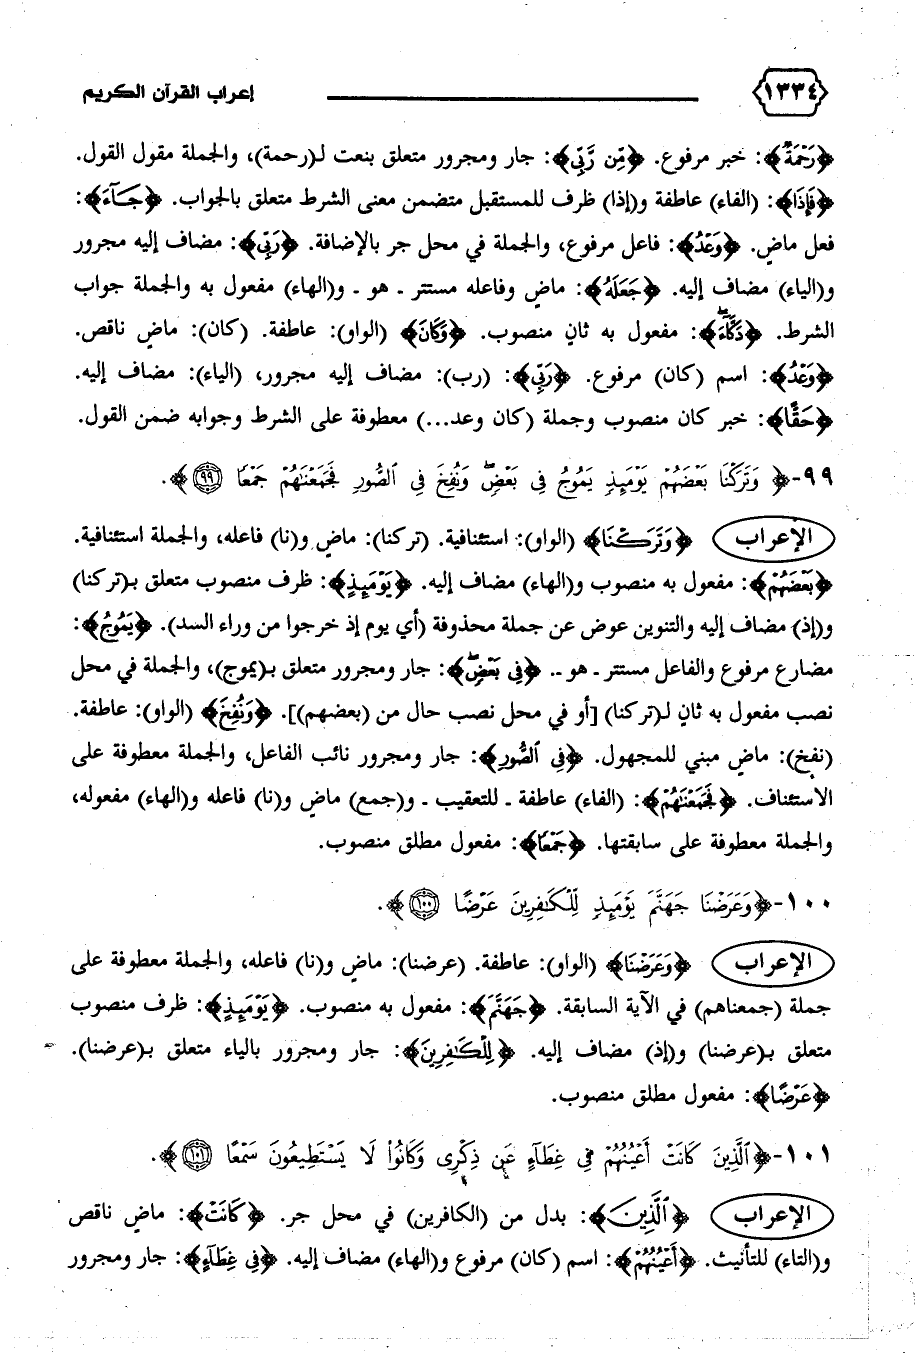 ١٣٣٤ إعراب القرآن الكريم
﴿رَحْمَةٌ﴾: خبر مرفوع. ﴿مِّن رَّبِّي﴾: جار ومجرور متعلق بنعت لـ(رحمة)، والجملة مقول القول.
﴿فَإِذَا﴾: (الفاء) عاطفة و(إذا) ظرف للمستقبل متضمن معنى الشرط متعلق بالجواب. ﴿جَآءَ﴾:
فعل ماضٍ. ﴿وَعْدُ﴾: فاعل مرفوع، والجملة في محل جر بالإضافة. ﴿رَبِّي﴾: مضاف إليه مجرور
و(الياء) مضاف إليه. ﴿جَعَلَهُ﴾: ماضٍ وفاعله مستتر ـ هو ـ و(الهاء) مفعول به والجملة جواب
الشرط. ﴿دَكَّآءَ﴾: مفعول به ثانٍ منصوب. ﴿وَكَانَ﴾ (الواو): عاطفة. (كان): ماضٍ ناقص.
﴿وَعْدُ﴾: اسم (كان) مرفوع. ﴿رَبِّي﴾: (رب): مضاف إليه مجرور، (الياء): مضاف إليه.
﴿حَقًّا﴾: خبر كان منصوب وجملة (كان وعد...) معطوفة على الشرط وجوابه ضمن القول.
٩٩-﴿وَتَرَكْنَا بَعْضَهُمْ يَوْمَئِذٍ يَمُوجُ فِي بَعْضٍ وَنُفِخَ فِي ٱلصُّورِ فَجَمَعْنَٰهُمْ جَمْعًا ۝٩٩﴾.
الإعراب ﴿وَتَرَكْنَا﴾ (الواو): استئنافية. (تركنا): ماضٍ و(نا) فاعله، والجملة استئنافية.
﴿بَعْضَهُمْ﴾: مفعول به منصوب و(الهاء) مضاف إليه. ﴿يَوْمَئِذٍ﴾: ظرف منصوب متعلق بـ(تركنا)
و(إذ) مضاف إليه والتنوين عوض عن جملة محذوفة (أي يوم إذ خرجوا من وراء السد). ﴿يَمُوجُ﴾:
مضارع مرفوع والفاعل مستتر ـ هو ـ. ﴿فِي بَعْضٍ﴾: جار ومجرور متعلق بـ(يموج)، والجملة في محل
نصب مفعول به ثانٍ لـ(تركنا) [أو في محل نصب حال من (بعضهم)]. ﴿وَنُفِخَ﴾ (الواو): عاطفة.
(نفخ): ماضٍ مبني للمجهول. ﴿فِي ٱلصُّورِ﴾: جار ومجرور نائب الفاعل، والجملة معطوفة على
الاستئناف. ﴿فَجَمَعْنَٰهُمْ﴾: (الفاء) عاطفة ـ للتعقيب ـ و(جمع) ماضٍ و(نا) فاعله و(الهاء) مفعوله،
والجملة معطوفة على سابقتها. ﴿جَمْعًا﴾: مفعول مطلق منصوب.
١٠٠-﴿وَعَرَضْنَا جَهَنَّمَ يَوْمَئِذٍ لِّلْكَٰفِرِينَ عَرْضًا ۝١٠٠﴾.
الإعراب ﴿وَعَرَضْنَا﴾ (الواو): عاطفة. (عرضنا): ماضٍ و(نا) فاعله، والجملة معطوفة على
جملة (جمعناهم) في الآية السابقة. ﴿جَهَنَّمَ﴾: مفعول به منصوب. ﴿يَوْمَئِذٍ﴾: ظرف منصوب
متعلق بـ(عرضنا) و(إذ) مضاف إليه. ﴿لِّلْكَٰفِرِينَ﴾: جار ومجرور بالياء متعلق بـ(عرضنا).
﴿عَرْضًا﴾: مفعول مطلق منصوب.
١٠١-﴿ٱلَّذِينَ كَانَتْ أَعْيُنُهُمْ فِي غِطَآءٍ عَن ذِكْرِي وَكَانُوا۟ لَا يَسْتَطِيعُونَ سَمْعًا ۝١٠١﴾.
الإعراب ﴿ٱلَّذِينَ﴾: بدل من (الكافرين) في محل جر. ﴿كَانَتْ﴾: ماضٍ ناقص
و(التاء) للتأنيث. ﴿أَعْيُنُهُمْ﴾: اسم (كان) مرفوع و(الهاء) مضاف إليه. ﴿فِي غِطَآءٍ﴾: جار ومجرور